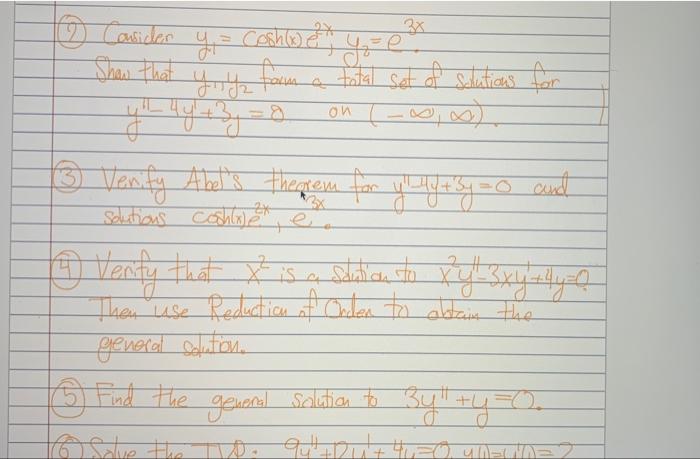 ② Consider y₁ = cosh(x)e²ˣ, y₂ = e³ˣ.
Show that y₁, y₂ form a total set of solutions for
y'' - 4y' + 3y = 0 on (-∞, ∞).
③ Verify Abel's theorem for y'' - 4y + 3y = 0 and
solutions cosh(x)e²ˣ, e³ˣ.
④ Verify that x² is a solution to x²y'' - 3xy' + 4y = 0.
Then use Reduction of Order to obtain the
general solution.
⑤ Find the general solution to 3y'' + y = 0.
⑥ Solve the 9y'' + 12y' + 4y = 0, y(1) = y'(1) = 2